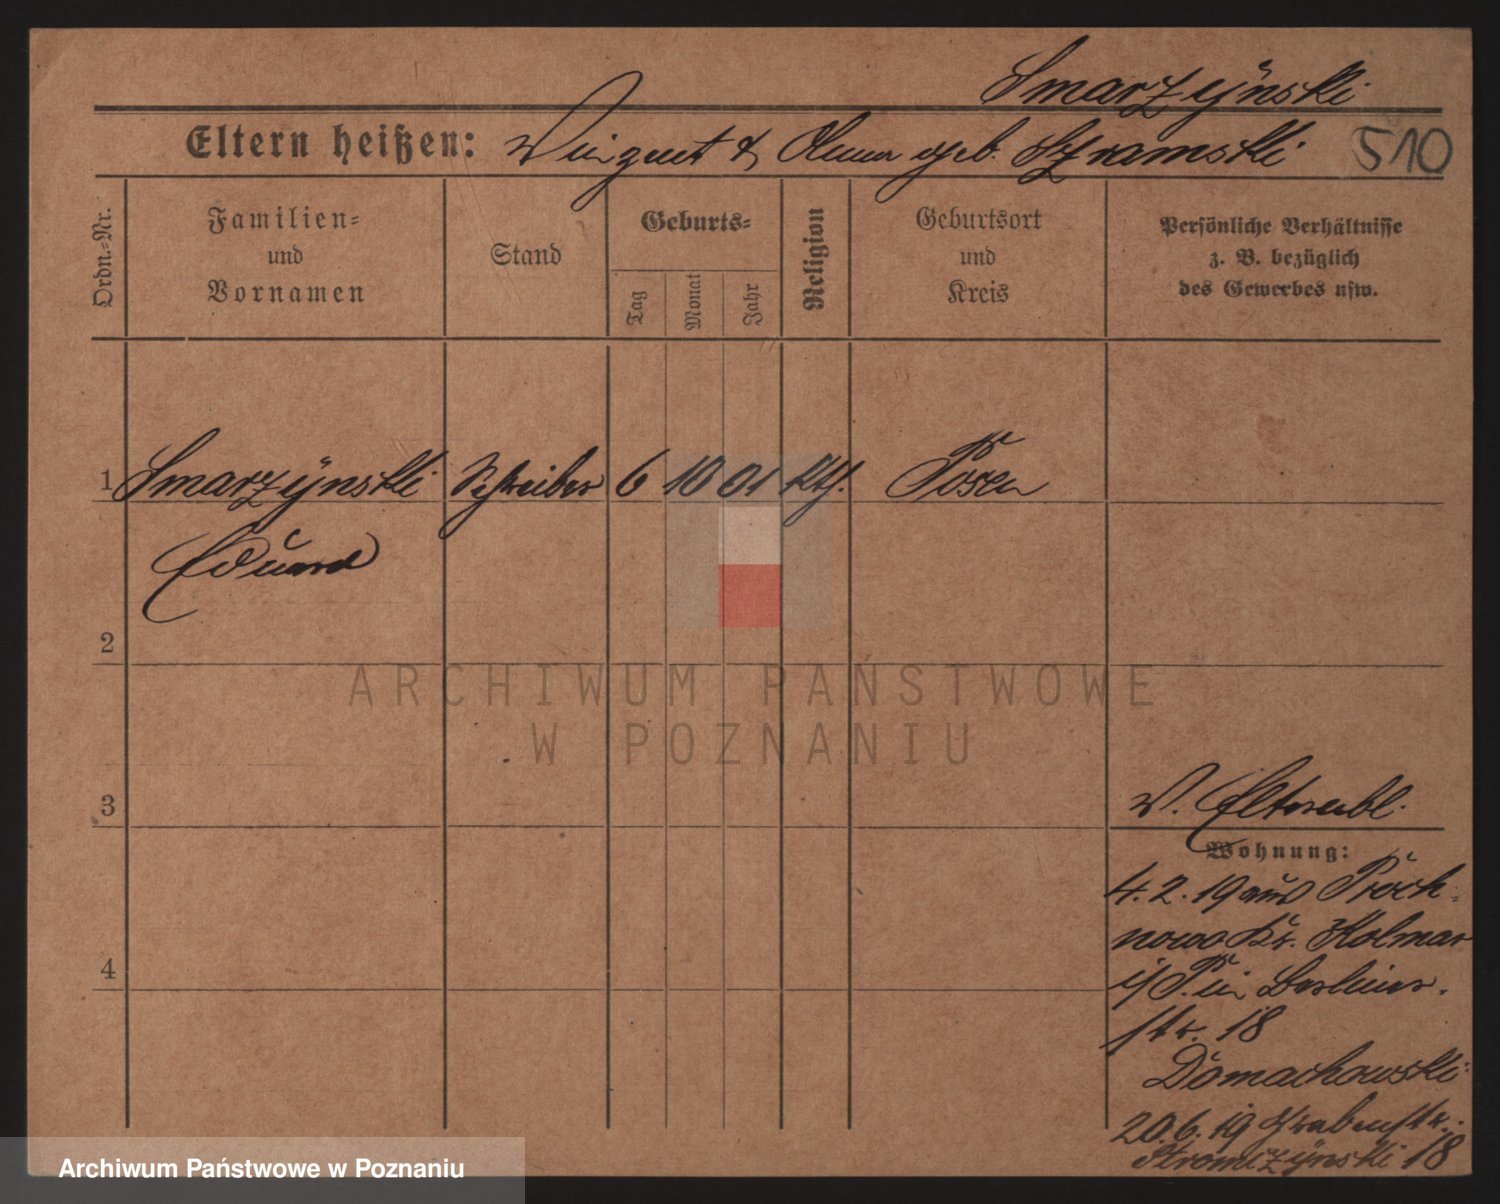 Smarzÿnski
Eltern heißen: Vinzent & Anna geb. Szramski 510
Ordn.-Nr.
Familien-
und
Vornamen
Stand
Geburts-
Tag
Monat
Jahr
Religion
Geburtsort
und
Kreis
Persönliche Verhältnisse
z. B. bezüglich
des Gewerbes usw.
1 Smarzÿnski Schreiber 6 10 01 Kth. Posen
Eduard
2
3
4
V. Elternbl.
Wohnung:
4.2.19 aus Proch-
nowo Kr. Kolmar
i/P. in Berliner-
str. 18
Domachowski
20.6.19 Grabenstr. 18
Stromczÿnski
ARCHIWUM PAŃSTWOWE
W POZNANIU
Archiwum Państwowe w Poznaniu